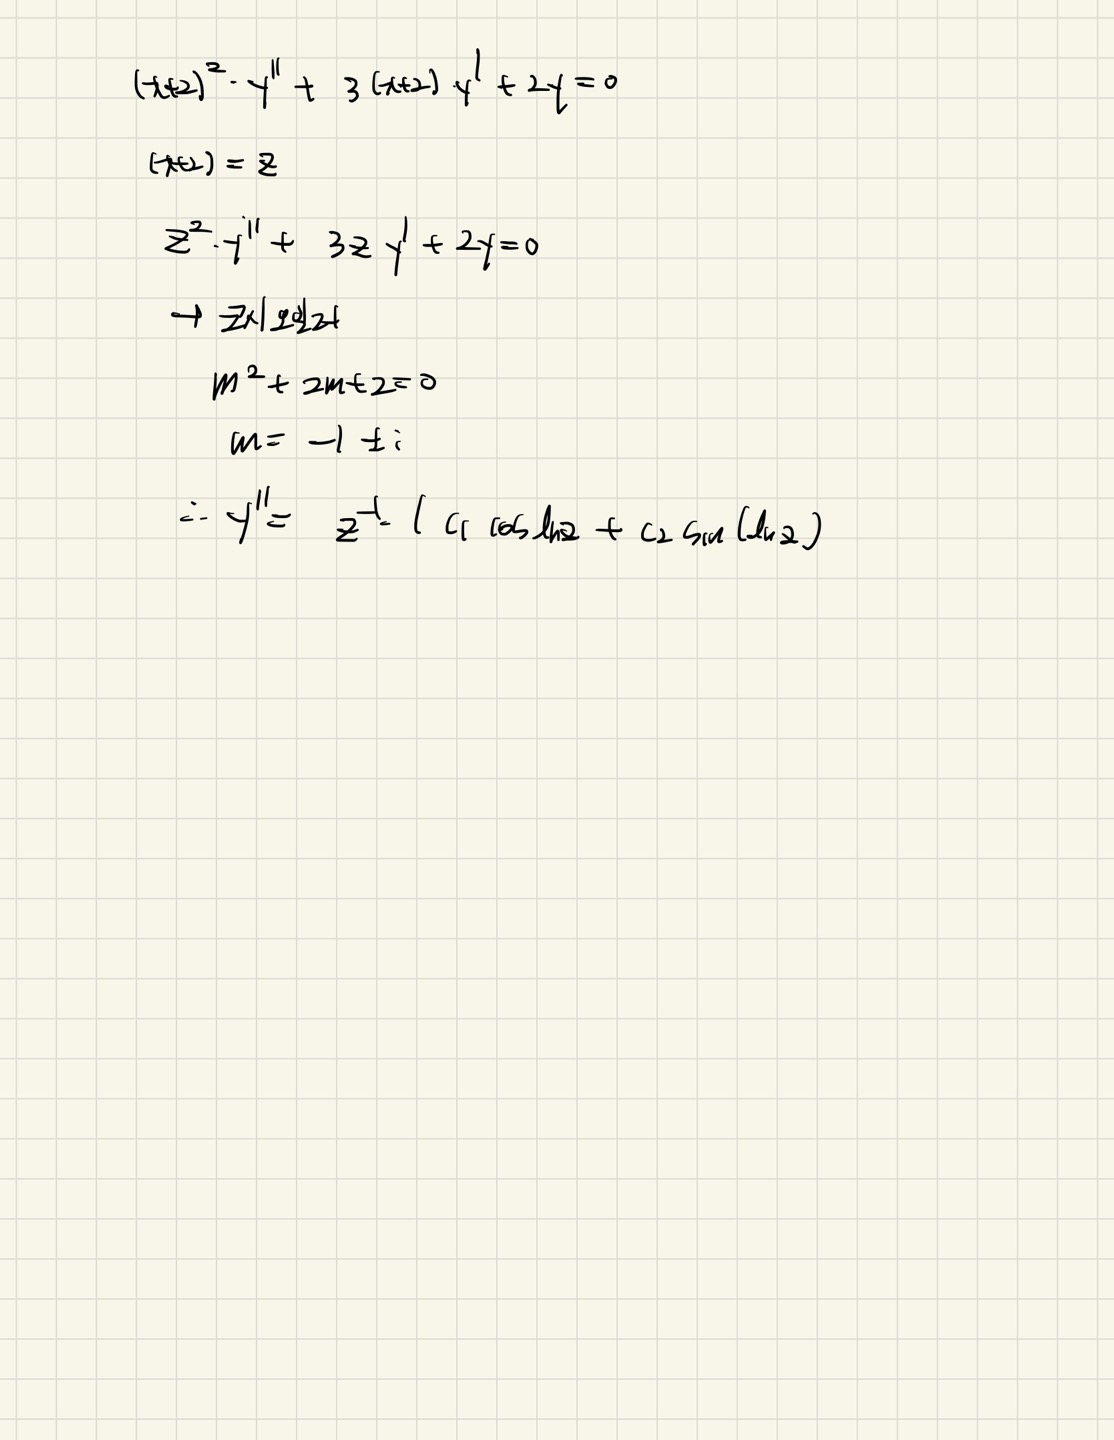 (x+2)² · y'' + 3(x+2) y' + 2y = 0
(x+2) = z
z² · y'' + 3z y' + 2y = 0
→
m² + 2m + 2 = 0
m = -1 ± i
∴ y'' = z⁻¹ · ( c₁ cos lnz + c₂ sin (lnz)